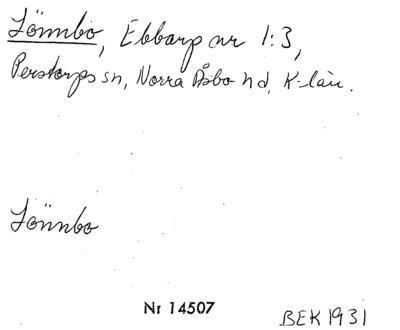 Lönnbo, Ebbarp nr 1:3,
Perstorps sn, Norra Åsbo hd, K-län.
Lönnbo
Nr 14507
BEK 1931